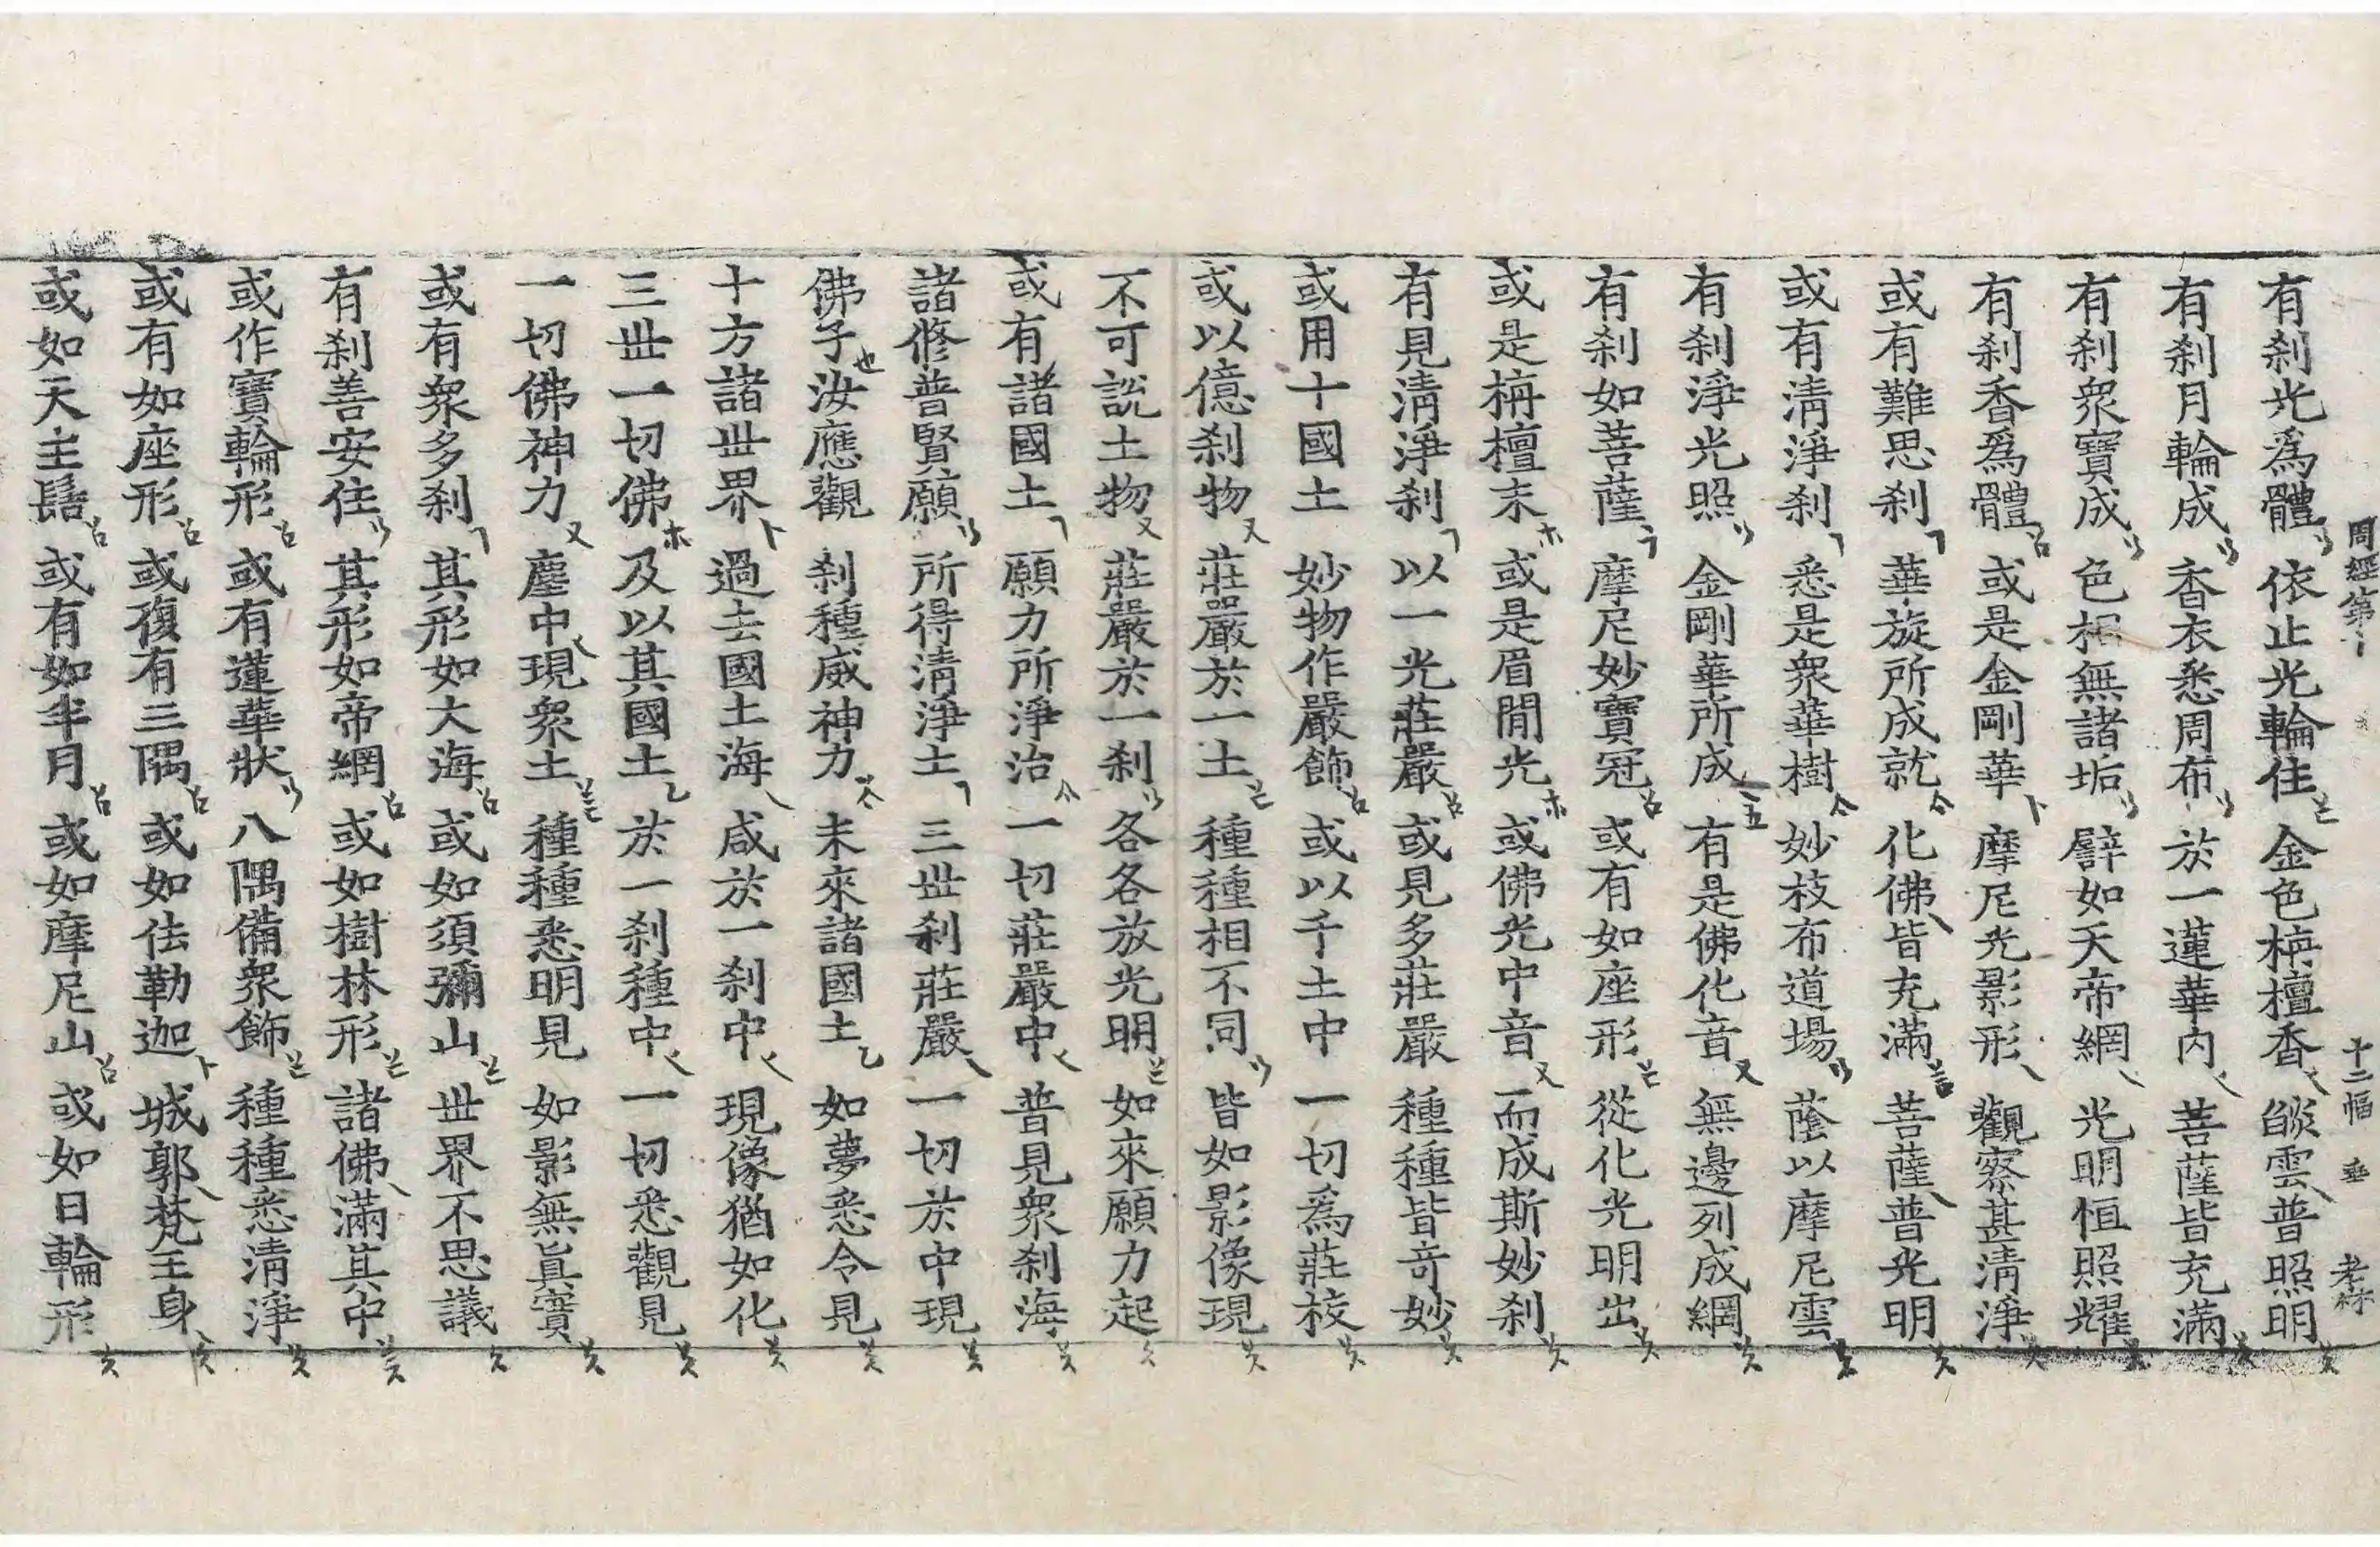 周經第十 十二幅 垂 孝林
有刹光爲體 依止光輪住 金色栴檀香 燄雲普照明
有刹月輪成 香衣悉周布 於一蓮華內 菩薩皆充滿
有刹衆寶成 色相無諸垢 譬如天帝網 光明恒照耀
有刹香爲體 或是金剛華 摩尼光影形 觀察甚清淨
或有難思刹 華旋所成就 化佛皆充滿 菩薩普光明
或有清淨刹 悉是衆華樹 妙枝布道場 蔭以摩尼雲
有刹淨光照 金剛華所成 有是佛化音 無邊列成網
有刹如菩薩 摩尼妙寶冠 或有如座形 從化光明出
或是栴檀末 或是眉閒光 或佛光中音 而成斯妙刹
有見清淨刹 以一光莊嚴 或見多莊嚴 種種皆奇妙
或用十國土 妙物作嚴飾 或以千土中 一切爲莊校
或以億刹物 莊嚴於一土 種種相不同 皆如影像現
不可說土物 莊嚴於一刹 各各放光明 如來願力起
或有諸國土 願力所淨治 一切莊嚴中 普見衆刹海
諸修普賢願 所得清淨土 三世刹莊嚴 一切於中現
佛子汝應觀 刹種威神力 未來諸國土 如夢悉令見
十方諸世界 過去國土海 咸於一刹中 現像猶如化
三世一切佛 及以其國土 於一刹種中 一切悉觀見
一切佛神力 塵中現衆土 種種悉明見 如影無眞實
或有衆多刹 其形如大海 或如須彌山 世界不思議
有刹善安住 其形如帝網 或如樹林形 諸佛滿其中
或作寶輪形 或有蓮華狀 八隅備衆飾 種種悉清淨
或有如座形 或復有三隅 或如佉勒迦 城郭梵王身
或如天主髻 或有如半月 或如摩尼山 或如日輪形